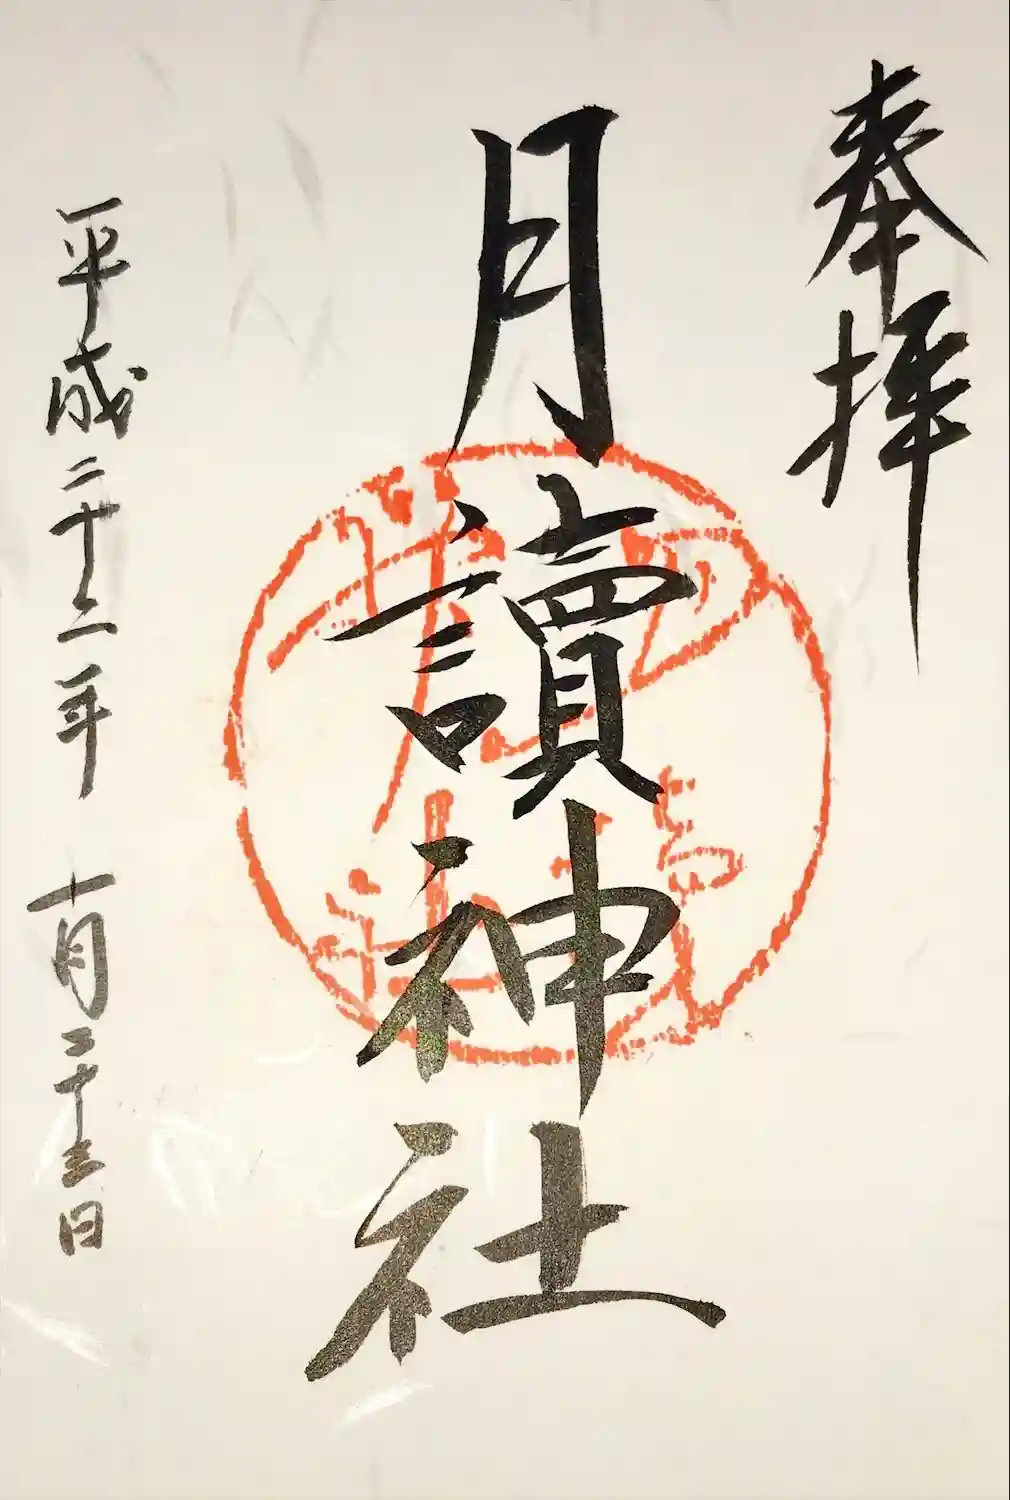 奉拝
月讀神社
平成二十二年 十月二十三日